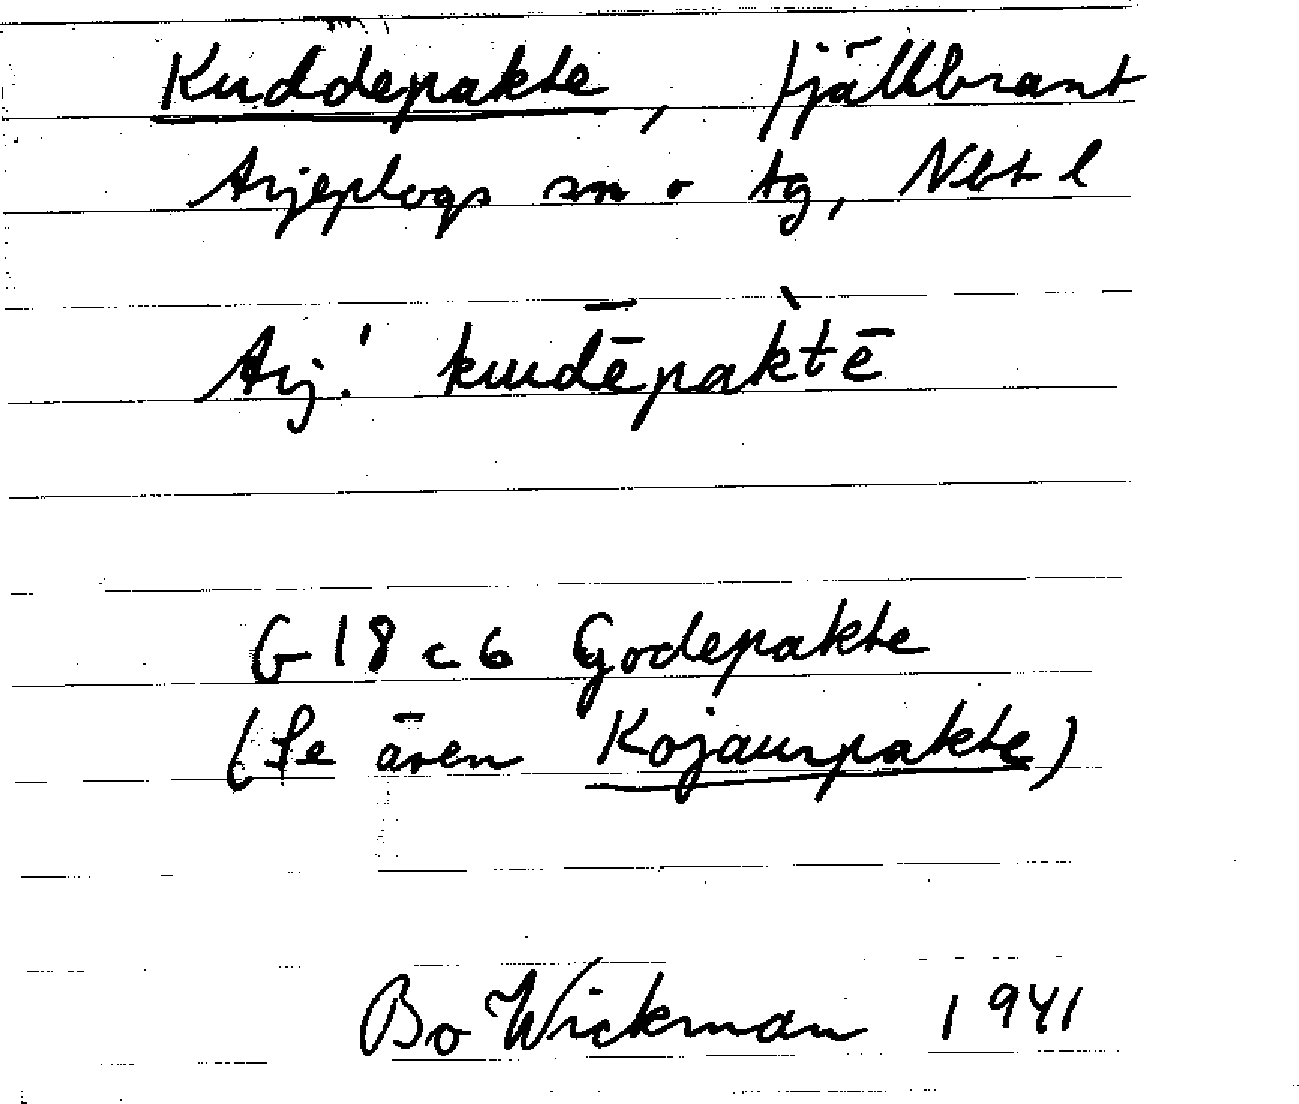 Kuddepakte, fjällbrant
Arjeplogs sn o tg, Nbt l
Arj. ˈkuudēpàktē
G 18 c 6 Godepakte
(Se även Kojaurpakte)
Bo Wickman 1941